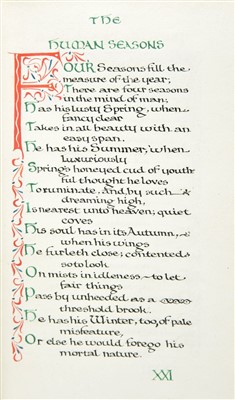 THE
HUMAN SEASONS
FOUR Seasons fill the
measure of the year;
There are four seasons
in the mind of man:
Has his lusty Spring, when
fancy clear
Takes in all beauty with an
easy span.
He has his Summer, when
luxuriously
Spring's honeyed cud of youth
ful thought he loves
To ruminate, and, by such
dreaming high,
Is nearest unto heaven; quiet
coves
His soul has in its Autumn,
when his wings
He furleth close; contented
so to look
On mists in idleness ~ to let
fair things
Pass by unheeded as a
threshold brook.
He has his Winter, too, of pale
misfeature,
Or else he would forego his
mortal nature.
XXI